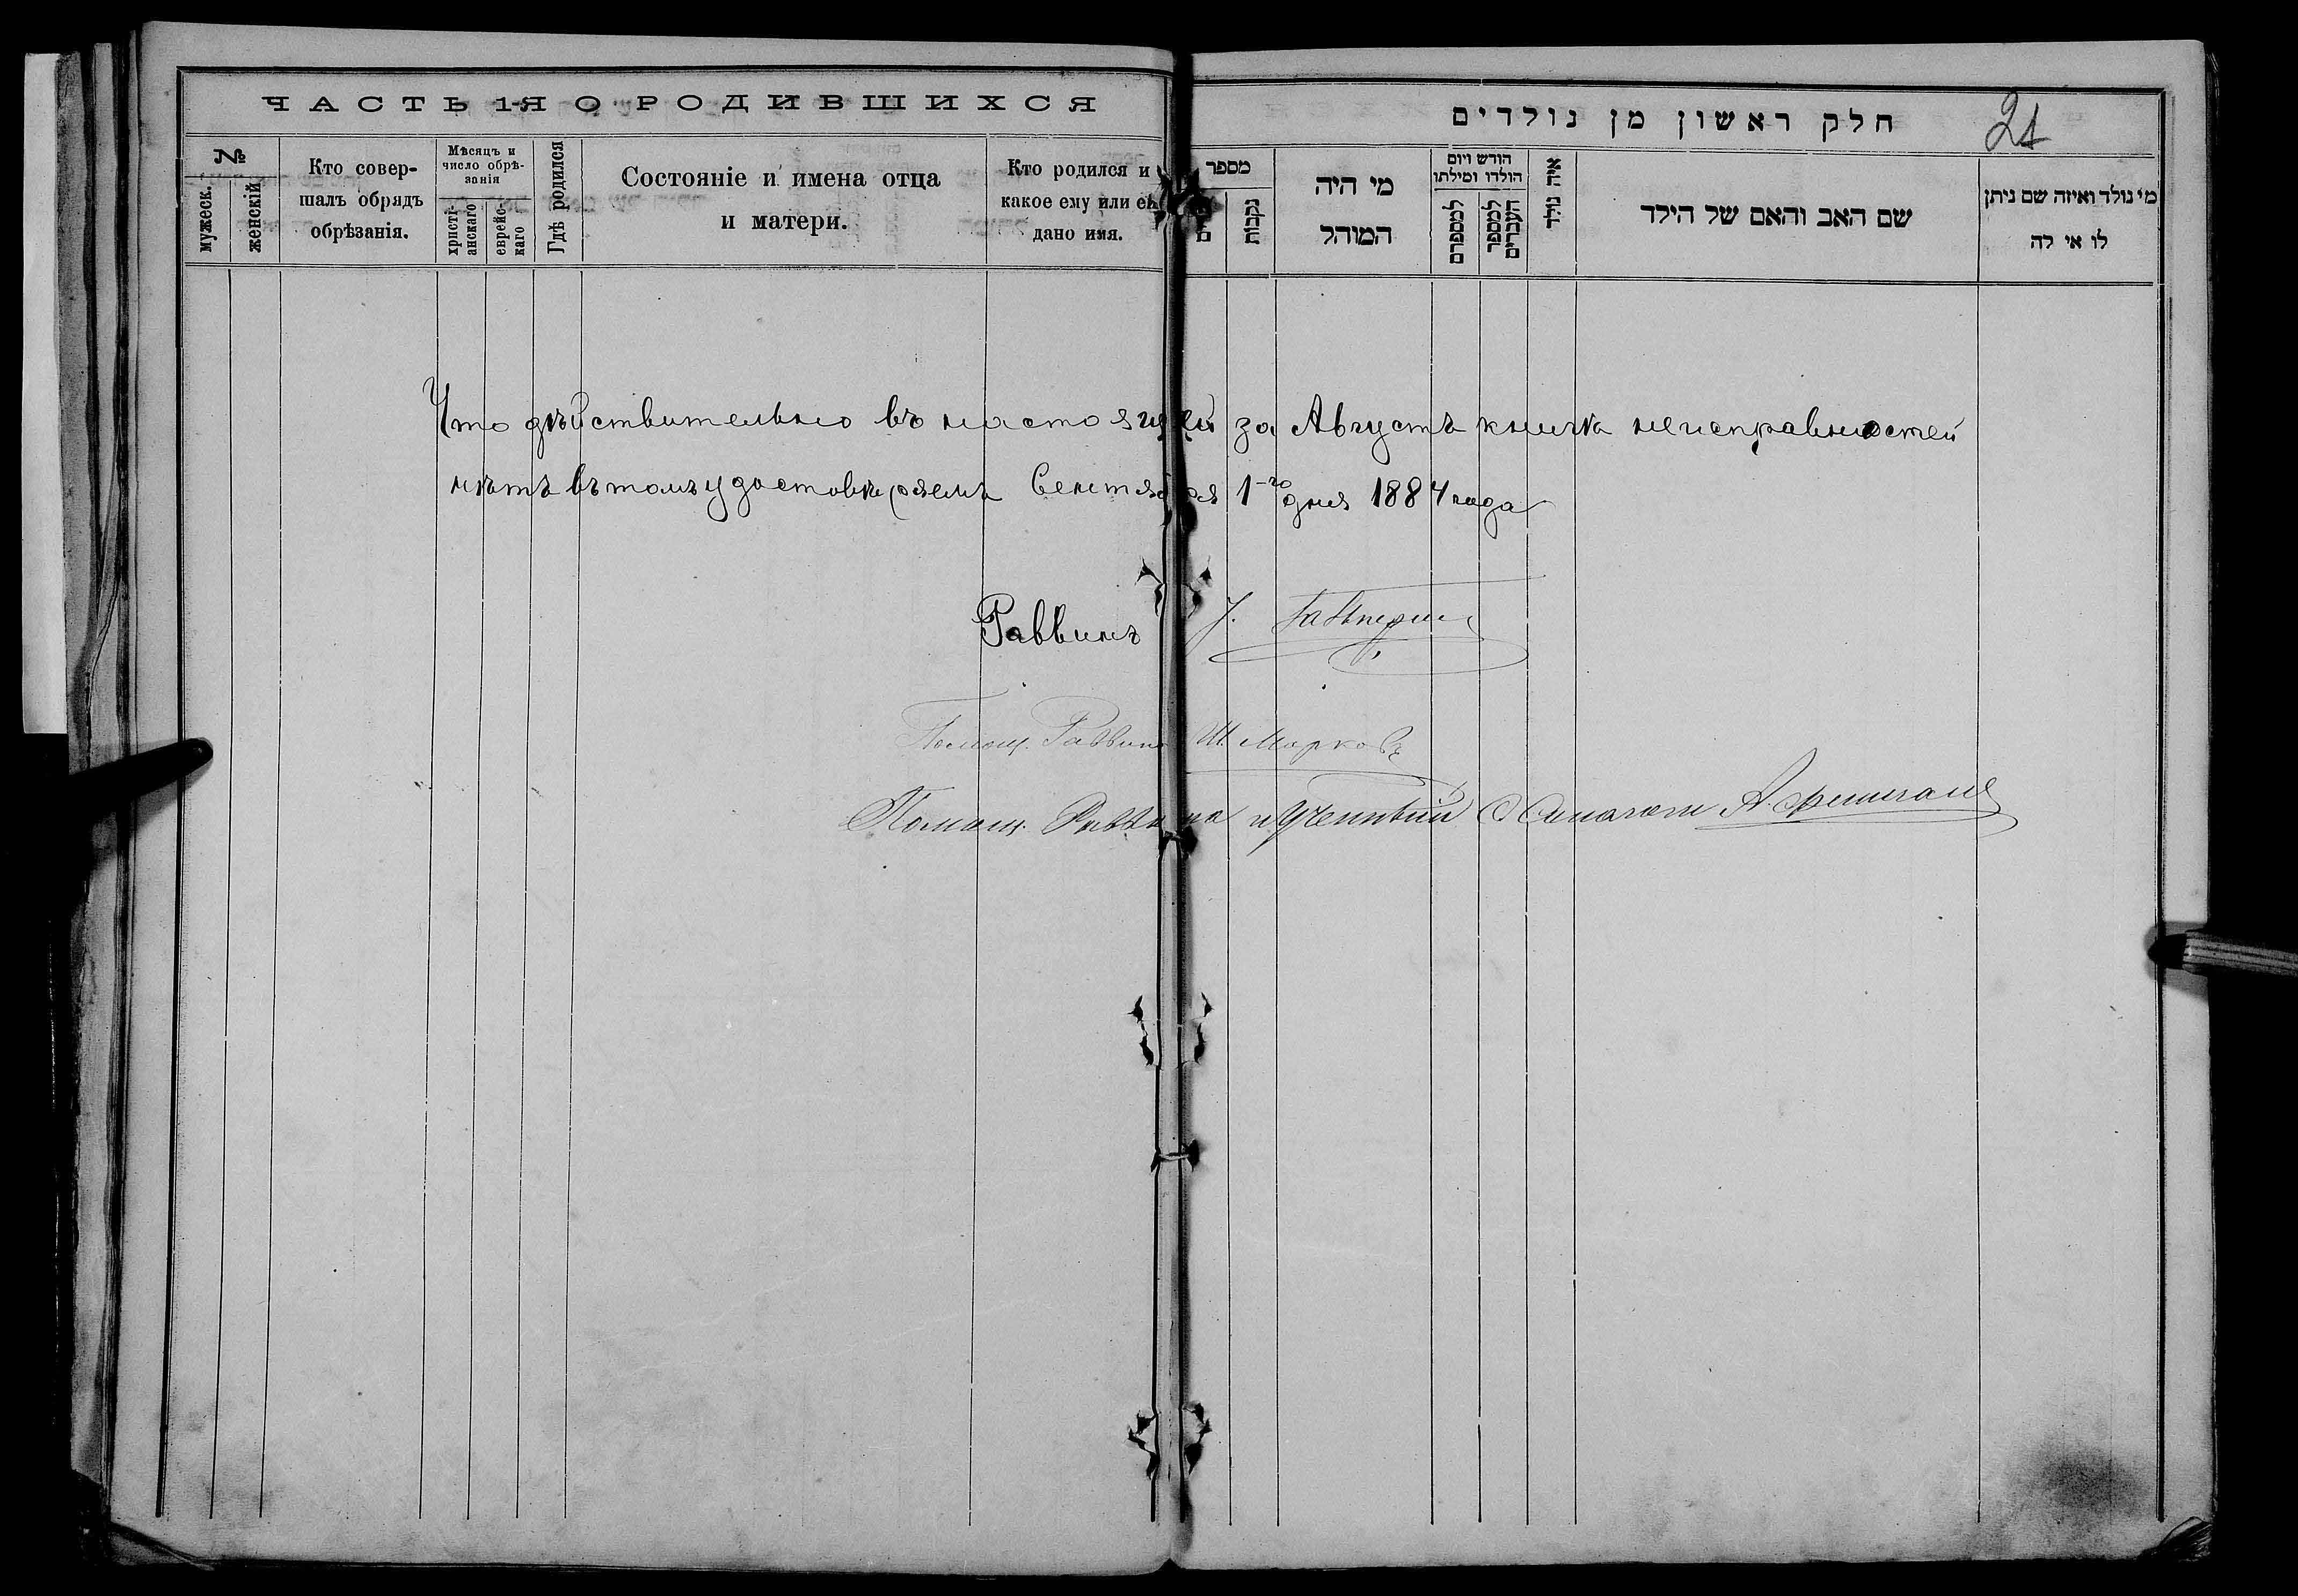 ЧАСТЬ 1-Я О РОДИВШИХСЯ
№
мужеск.
женскій
Кто совер-
шалъ обрядъ
обрѣзанія.
Мѣсяцъ и
число обрѣ-
занія
христі-
анскаго
еврейс-
каго
Гдѣ родился
Состояніе и имена отца
и матери.
Кто родился и
какое ему или ей
дано имя.
חלק ראשון מן נולדים
21
מספר
נקבות
מי היה
המוהל
הודש ויום
הולדו ומילתו
למספרם
למספר
העברים
איה נולד
שם האב והאם של הילד
מי נולד ואיזה שם ניתן
לו אי לה
Что дѣйствительно въ настоящей за Августъ книгѣ неисправностей
нѣтъ въ томъ удостовѣряемъ Сентября 1-го дня 1884 года
Раввинъ
Помощ. Раввина Ш. Марковъ
Помощ. Раввина и Ученный